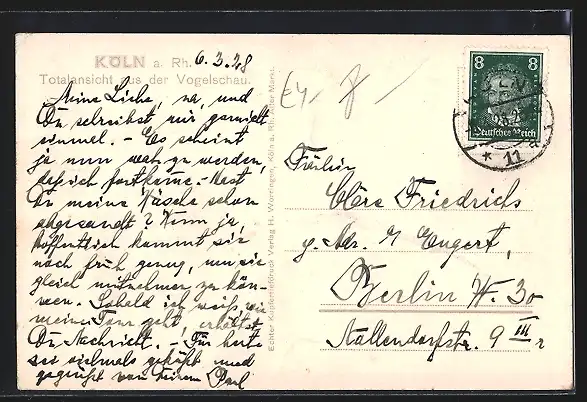 KÖLN a. Rh. 6.3.28
Totalansicht aus der Vogelschau.
Meine Liebe, na, und
Du schreibst mir garnicht
einmal. - Es scheint
ja nun wahr zu werden,
daß ich fortkomme. - Hast
Du meine Wäsche schon
abgesandt? Wenn ja,
hoffentlich kommt sie
noch früh genug, um sie
gleich mitnehmen zu kön-
nen. Sobald ich weiß, wie
meine Tour geht, erhältst
Du Nachricht. - Für heute
sei vielmals geküßt und
gegrüßt von Deinem Paul
Echter Kupfertiefdruck Verlag H. Worringen, Köln a. Rh. Alter Markt.
8 8
Deutsches Reich
* 11
Fräulein
Cläre Friedrichs
Engert,
Berlin W. 30
9 III r